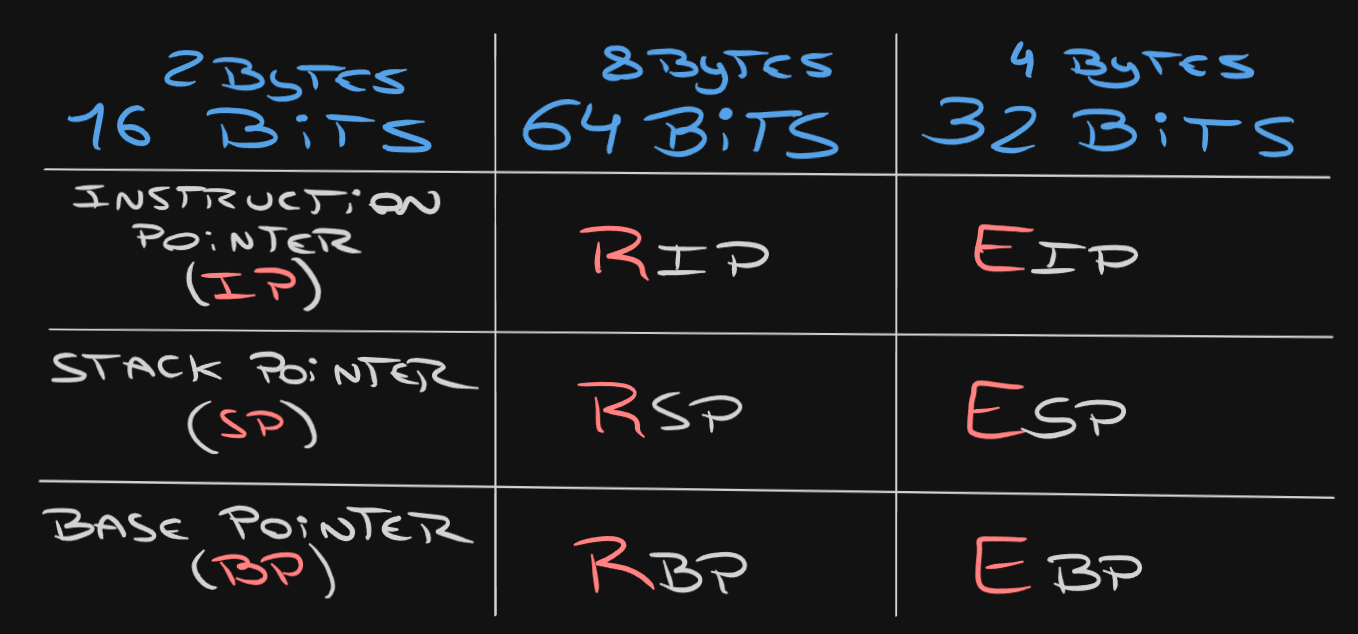 2 BYTES
16 BITS
8 BYTES
64 BITS
4 BYTES
32 BITS
INSTRUCTION
POINTER
(IP)
RIP
EIP
STACK POINTER
(SP)
RSP
ESP
BASE POINTER
(BP)
RBP
EBP